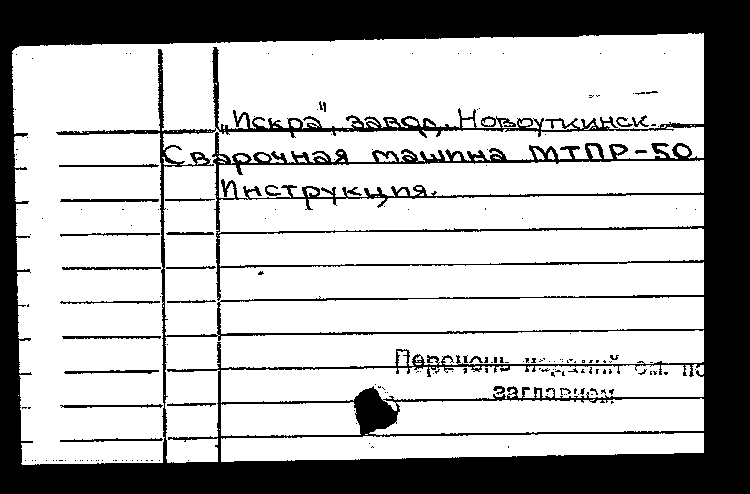 „Искра", завод, Новоуткинск.
Сварочная машина МТПР-50
Инструкция.
Перечень изданий см. по
заглавном